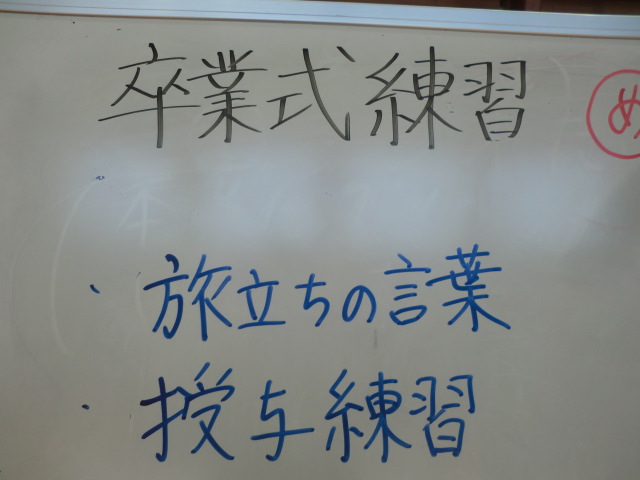 卒業式練習
め
・旅立ちの言葉
・授与練習